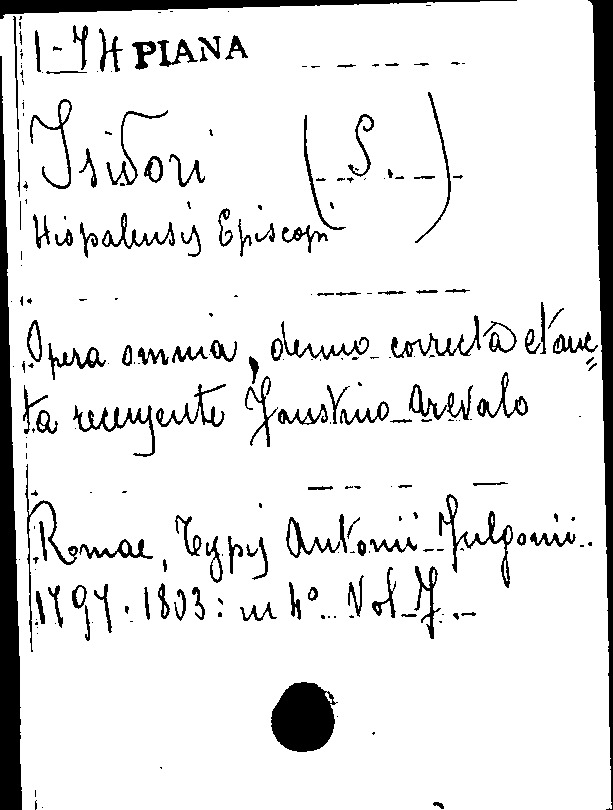 1-7 H PIANA
Isidori (S.)
Hispalensis Episcopi
Opera omnia, denuo correcta et auc=
ta recensente Faustino Arevalo
Romae, Typis Antonii Fulgonii.
1797.1803: in 4° Vol 7.